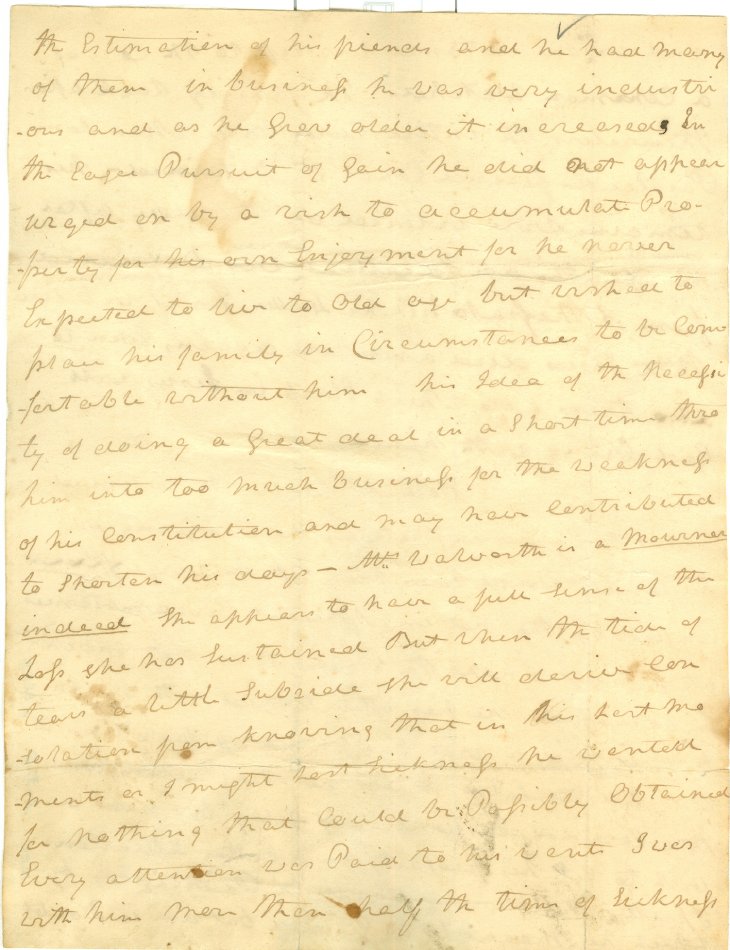 the Estimation of his friends and he had many
of them in business he was very industri
-ous and as he Grew older it increased, In
the Eager Pursuit of Gain he did not appear
urged on by a wish to accumulate Pro-
-perty for his own Enjoyment for he never
Expected to live to old age but wished to
place his family in Circumstances to be Com
-fortable without him his Idea of the Necessi
ty of doing a Great deal in a Short time thro
him into too much business for the weakness
of his Constitution and may have Contributed
to Shorten his days – Mrs Walworth is a Mourner
indeed She appears to have a full sense of the
Loss she has Sustained But when the tide of
tears a little Subside she will derive Con
-solation from knowing that in his last Mo
-ments or I might last Sickness he wanted
for nothing that Could be Possibly Obtained
Every attention was Paid to his wants I was
with him more than half the time of Sickness